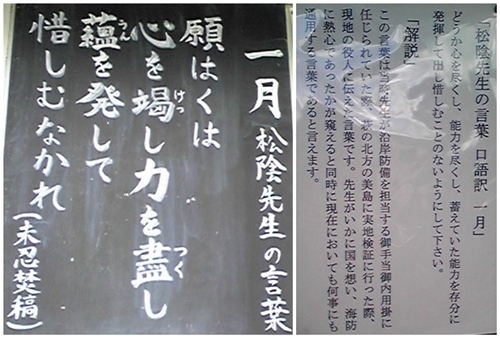 一月 松陰先生の言葉
願はくは
心を竭し力を盡し
けっ
つく
蘊を発して
うん
惜しむなかれ(未忍焚稿)
「松陰先生の言葉 口語訳 一月」
どうか心を尽くし、能力を尽くし、蓄えていた能力を存分に
発揮して出し惜しむことのないようにして下さい。
「解説」
この言葉は当時先生が沿岸防備を担当する御手当御内用掛に
任じられていた際、萩の北方の美島に実地検証に行った際、
現地の役人に伝えた言葉です。先生がいかに国を想い、海防
に熱心であったかが窺えると同時に現在においても何事にも
通用する言葉であると言えます。